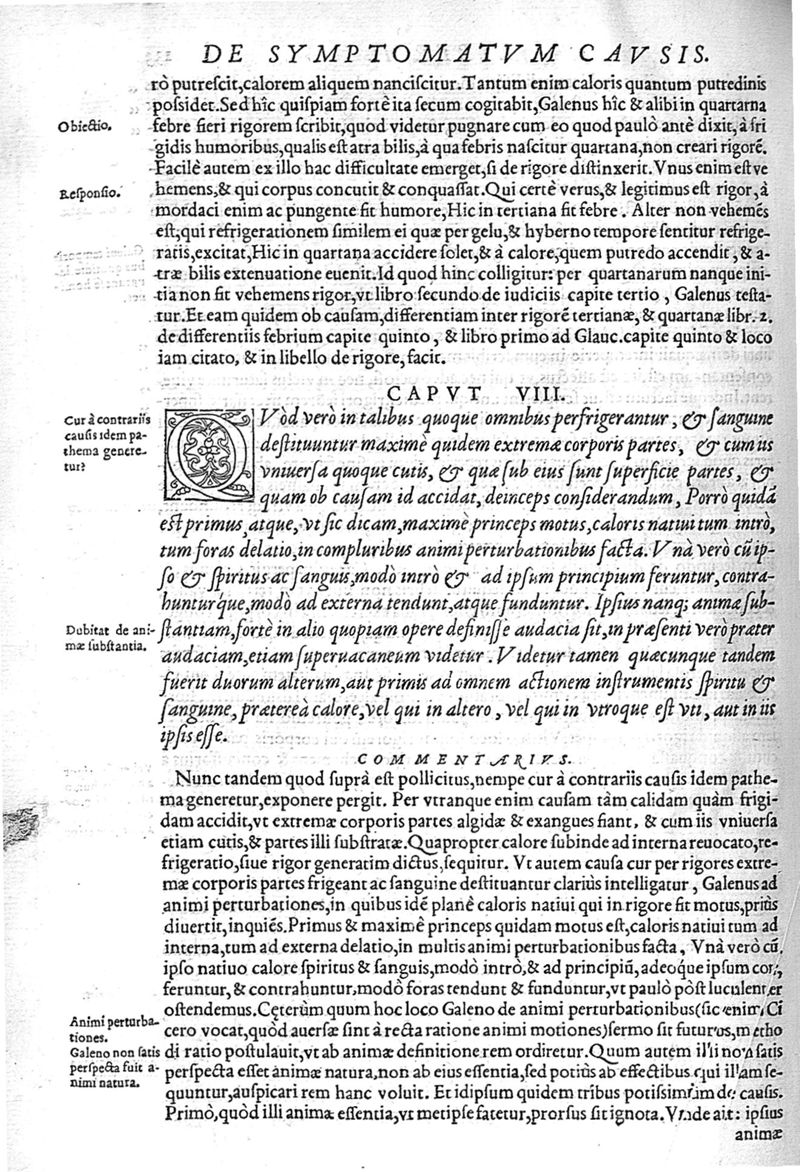 DE SYMPTOMATVM CAVSIS.
rò putrescit, calorem aliquem nanciscitur. Tantum enim caloris quantum putredinis
possidet. Sed hîc quispiam fortè ita secum cogitabit, Galenus hîc & alibi in quartana
Obiectio.
febre fieri rigorem scribit, quod videtur pugnare cum eo quod paulò antè dixit, à fri
gidis humoribus, qualis est atra bilis, à qua febris nascitur quartana, non creari rigorē.
Facilè autem ex illo hac difficultate emerget, si de rigore distinxerit. Vnus enim est ve
Responsio.
hemens, & qui corpus concutit & conquassat. Qui certè verus, & legitimus est rigor, à
mordaci enim ac pungente fit humore, Hic in tertiana fit febre. Alter non vehemēs
est, qui refrigerationem similem ei quæ per gelu, & hyberno tempore sentitur refrige-
ratis, excitat, Hic in quartana accidere solet, & à calore, quem putredo accendit, & a-
træ bilis extenuatione euenit. Id quod hinc colligitur: per quartanarum nanque ini-
tia non fit vehemens rigor, vt libro secundo de iudiciis capite tertio, Galenus testa-
tur. Et eam quidem ob causam, differentiam inter rigorē tertianæ, & quartanæ libr. 2.
de differentiis febrium capite quinto, & libro primo ad Glauc. capite quinto & loco
iam citato, & in libello de rigore, facit.
CAPVT VIII.
Cur à contrariis
causis idem pa-
thema genere-
tur?
QVòd verò in talibus quoque omnibus perfrigerantur, & sanguine
destituuntur maximè quidem extremæ corporis partes, & cum iis
vniuersa quoque cutis, & quæ sub eius sunt superficie partes, &
quam ob causam id accidat, deinceps considerandum, Porrò quidā
est primus, atque, vt sic dicam, maximè princeps motus, caloris natiui tum intrò,
tum foras delatio, in compluribus animi perturbationibus facta. Vnà verò cū ip-
so & spiritus ac sanguis, modò intrò & ad ipsum principium feruntur, contra-
hunturque, modò ad externa tendunt, atque funduntur. Ipsius nanq; animæ sub-
Dubitat de ani-
mæ substantia.
stantiam, fortè in alio quopiam opere definisse audacia sit, in præsenti verò præter
audaciam, etiam superuacaneum videtur. Videtur tamen quæcunque tandem
fuerit duorum alterum, aut primis ad omnem actionem instrumentis spiritu &
sanguine, prætereà calore, vel qui in altero, vel qui in vtroque est vti, aut in iis
ipsis esse.
COMMENTARIVS.
Nunc tandem quod suprà est pollicitus, nempe cur à contrariis causis idem pathe-
ma generetur, exponere pergit. Per vtranque enim causam tàm calidam quàm frigi-
dam accidit, vt extremæ corporis partes algidæ & exangues fiant, & cum iis vniuersa
etiam cutis, & partes illi substratæ. Quapropter calore subinde ad interna reuocato, re-
frigeratio, siue rigor generatim dictus, sequitur. Vt autem causa cur per rigores extre-
mæ corporis partes frigeant ac sanguine destituantur clariùs intelligatur, Galenus ad
animi perturbationes, in quibus idē planè caloris natiui qui in rigore fit motus, priùs
diuertit, inquiēs. Primus & maximè princeps quidam motus est, caloris natiui tum ad
interna, tum ad externa delatio, in multis animi perturbationibus facta, Vnà verò cū
ipso natiuo calore spiritus & sanguis, modò intrò, & ad principiū, adeoque ipsum cor,
feruntur, & contrahuntur, modò foras tendunt & funduntur, vt paulò pòst luculenter
ostendemus. Cęterùm quum hoc loco Galeno de animi perturbationibus (sic enim Ci
Animi perturba-
tiones.
cero vocat, quòd auersæ sint à recta ratione animi motiones) sermo sit futurus, metho
Galeno non satis
perspecta fuit a-
nimi natura.
di ratio postulauit, vt ab animæ definitione rem ordiretur. Quum autem illi non satis
perspecta esset animæ natura, non ab eius essentia, sed potiùs ab effectibus qui illam se-
quuntur, auspicari rem hanc voluit. Et idipsum quidem tribus potissimùm de causis.
Primò, quòd illi animæ essentia, vt metipse fatetur, prorsus sit ignota. Vnde ait: ipsius
animæ